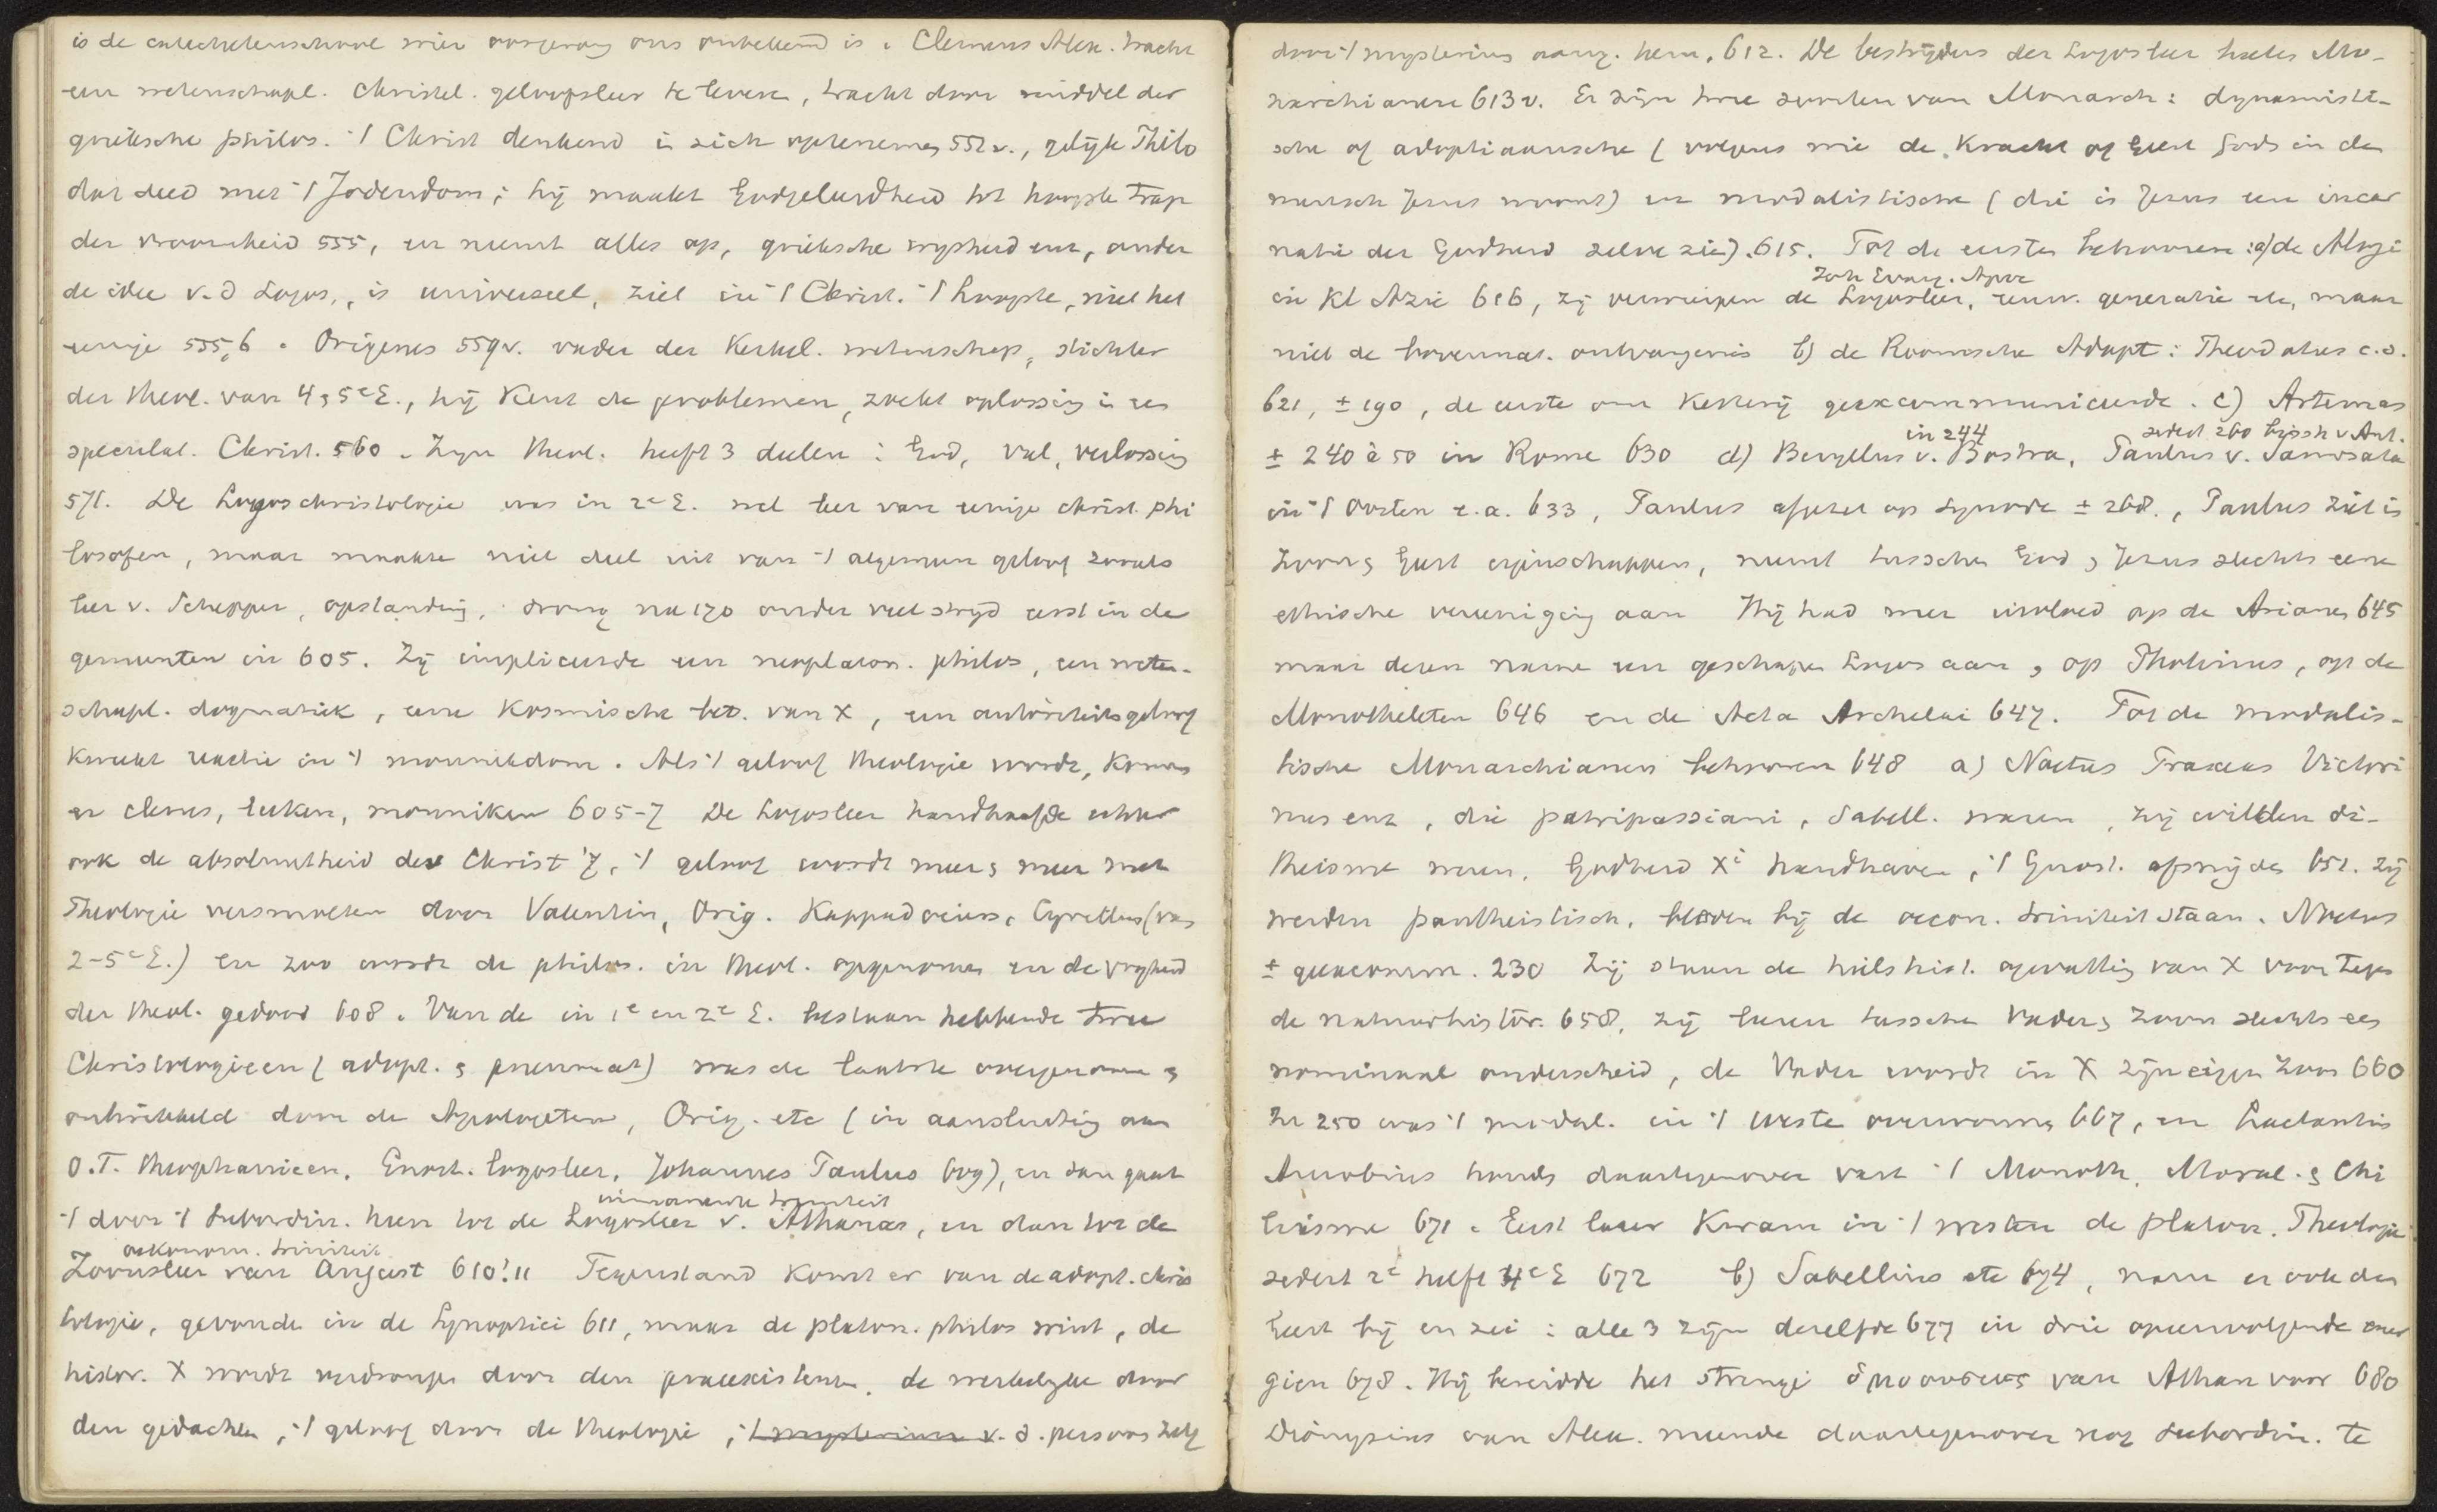 is de catechetenschool wier oorsprong ons onbekend is. Clemens Alex. tracht
een wetenschapl. Christel. geloofsleer te leveren, tracht door middel der
grieksche philos. 't Christ denkend in zich optenemen 552v., gelijk Philo
dat deed met 't Jodendom; hij maakt Godgeleerdheid tot hoogste trap
der vroomheid 555, en neemt alles op, grieksche wijsheid enz, onder
de idee v.d Logos, is universeel, ziet in 't Christ. 't hoogste, niet het
eenige 555,6. Origenes 559v. vader der Kerkel. wetenschap, stichter
der theol. van 4 & 5e E., hij Kent de problemen, zoekt oplossing in een
speculat. Christ. 560. Zijn theol. heeft 3 deelen: God, val, verlossing
571. De Logoschristologie was in 2e E. wel leer van eenige christ. phi
losofen, maar maakte niet deel uit van 't algemeen geloof zooals
leer v. Schepper, opstanding, drong na 170 onder veel strijd eerst in de
gemeenten in 605. Zij impliceerde een neoplaton. philos, een weten-
schapl. dogmatiek, eene Kosmische bet. van X, een autoriteitsgeloof
Kweekt reactie in 't monnikdom. Als 't geloof theologie wordt, Komen
er clerus, leeken, monniken 605-7 De Logosleer handhaafde echter
ook de absoluutheid des Christ 7, 't geloof wordt meer & meer met
Theologie versmolten door Valentin, Orig. Kappadociers, Cyrillus (van
2-5e E.) en zoo wordt de philos. in theol. opgenomen en de vrijheid
der theol. gedood 608. Van de in 1e en 2e E. bestaan hebbende twee
Christologieen (adopt. & pneumat) was de laatste overgenomen &
ontwikkeld door de Apologeten, Orig. etc (in aansluiting aan
O.T. theophanieen, Enoch. logosleer, Johannes Paulus 609), en dan gaat
immanente triniteit
't door 't subordin. heen tot de Logosleer v. Athanas, en dan tot de
oekonom. triniteit
Zoonsleer van August 610! 11 Tegenstand Komt er van de adopt. chris
tologie, gevonden in de Synoptici 611, maar de platon. philos wint, de
histor. X wordt verdrongen door den praeexistenten, de werkelijke door
den gedachten, 't geloof door de theologie, 't mysterium v. d. persoon zelf
door 't mysterium aang. hem. 612. De bestrijders der Logosleer heeten Mo-
narchianen 613v. Er zijn twee soorten van Monarch: dynamisti-
sche of adoptiaansche (volgens wie de Kracht of Geest Gods in den
mensch Jezus woont) en modalistische (die in Jezus een incar
natie der Godheid zelve zien). 615. Tot de eersten behooren: a) de Alogi
Joh Evang. Apoc
in Kl Azie 616, zij verwerpen de Logosleer, eeuw. generatie etc, maar
niet de bovennat. ontvangenis b) de Roomsche Adopt: Theodotus c.s.
621, ± 190, de eerste om Ketterij geexcommuniceerde. c) Artemas
in 244 sedert 260 bissch v Ant.
± 240 à 50 in Rome 630 d) Beryllus v. Bostra, Paulus v. Samosata
in 't Oosten e.a. 633, Paulus afgezet op synode ± 268., Paulus ziet in
Zoon & Geest eigenschappen, neemt tusschen God & Jezus slechts eene
ethische vereeniging aan Hij had meer invloed op de Arianen 645
maar dezen namen een geschapen Logos aan, op Photinus, op de
Monotheleten 646 en de Acta Archelai 647. Tot de modalis-
tische Monarchianen behooren 648 a) Noetus Praxeas Victori
nus enz, die patripassiani, Sabell. waren, zij wilden di-
theisme weren, Godheid Xi handhaven, 't Gnost. afsnijden 651. zij
werden pantheistisch, bleven bij de oecon. triniteit staan. Noetus
± geexcomm. 230 Zij staan de heilshist. opvatting van X voor tegen
de natuurhistor. 658, zij leeren tusschen Vader & Zoon slechts een
nominaal onderscheid, de Vader wordt in X zijn eigen Zoon 660
In 250 was 't modal. in 't Weste overwonnen 667, en Lactantius
Arnobius houden daartegenover vast 't Monoth., Moral. & Chi
liasme 671. Eerst later Kwam in 't westen de platon. Theologie
sedert 2e helft 4e E 672 b) Sabellius etc 674, nam er ook den
Geest bij en zei: alle 3 zijn dezelfde 677 in drie opeenvolgende ener
gieen 678. Hij bereidde het strenge ὁμοουσιος van Athan voor 680
Dionysius van Alex. meende daartegenover nog subordin. te